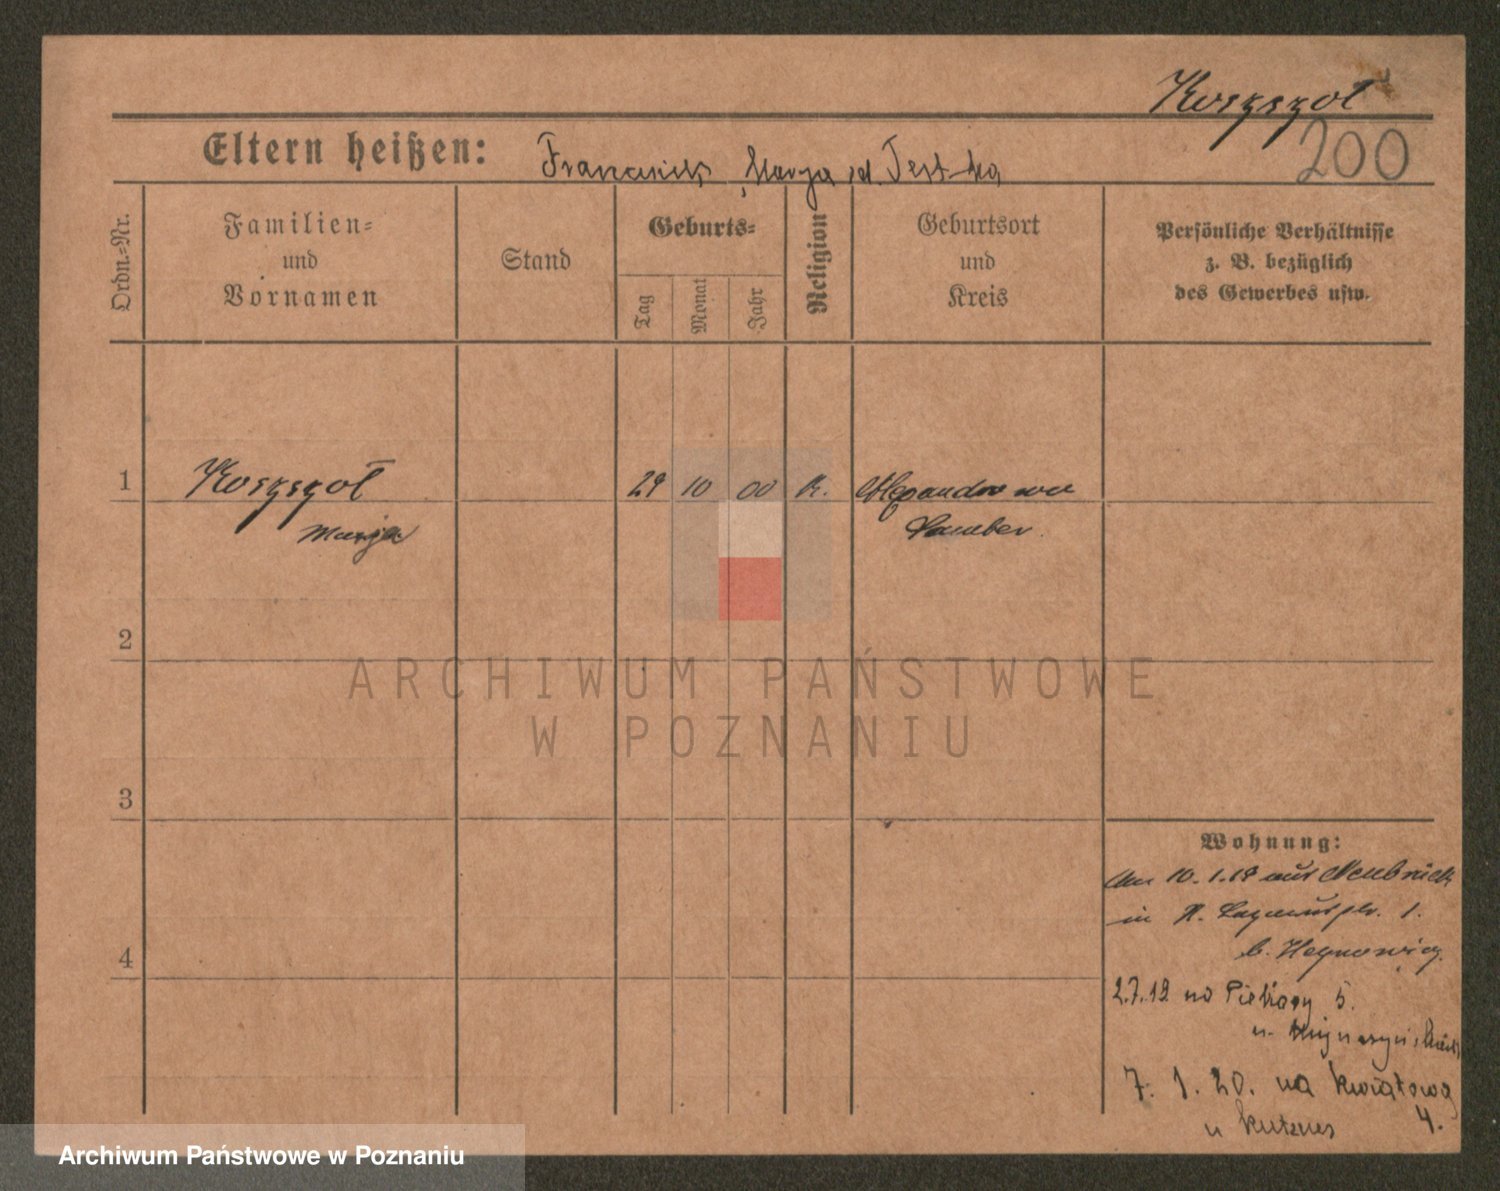 Koszszoł
200
Eltern heißen: Franciszek, Marya
Ordn.-Nr.
Familien- und Vornamen
Stand
Geburts-
Tag
Monat
Jahr
Religion
Geburtsort und Kreis
Persönliche Verhältnisse
z. B. bezüglich
des Gewerbes usw.
1
Koszszoł
29 10 00 K.
Marja
Samber
2
ARCHIWUM PAŃSTWOWE
W POZNANIU
3
Wohnung:
Am 10.1.19 aus Neubrück
in 1.
b.
4
2.7.19 na Piekary 5.
u.
7. 1. 20. na Kwiatową
u 4.
Archiwum Państwowe w Poznaniu